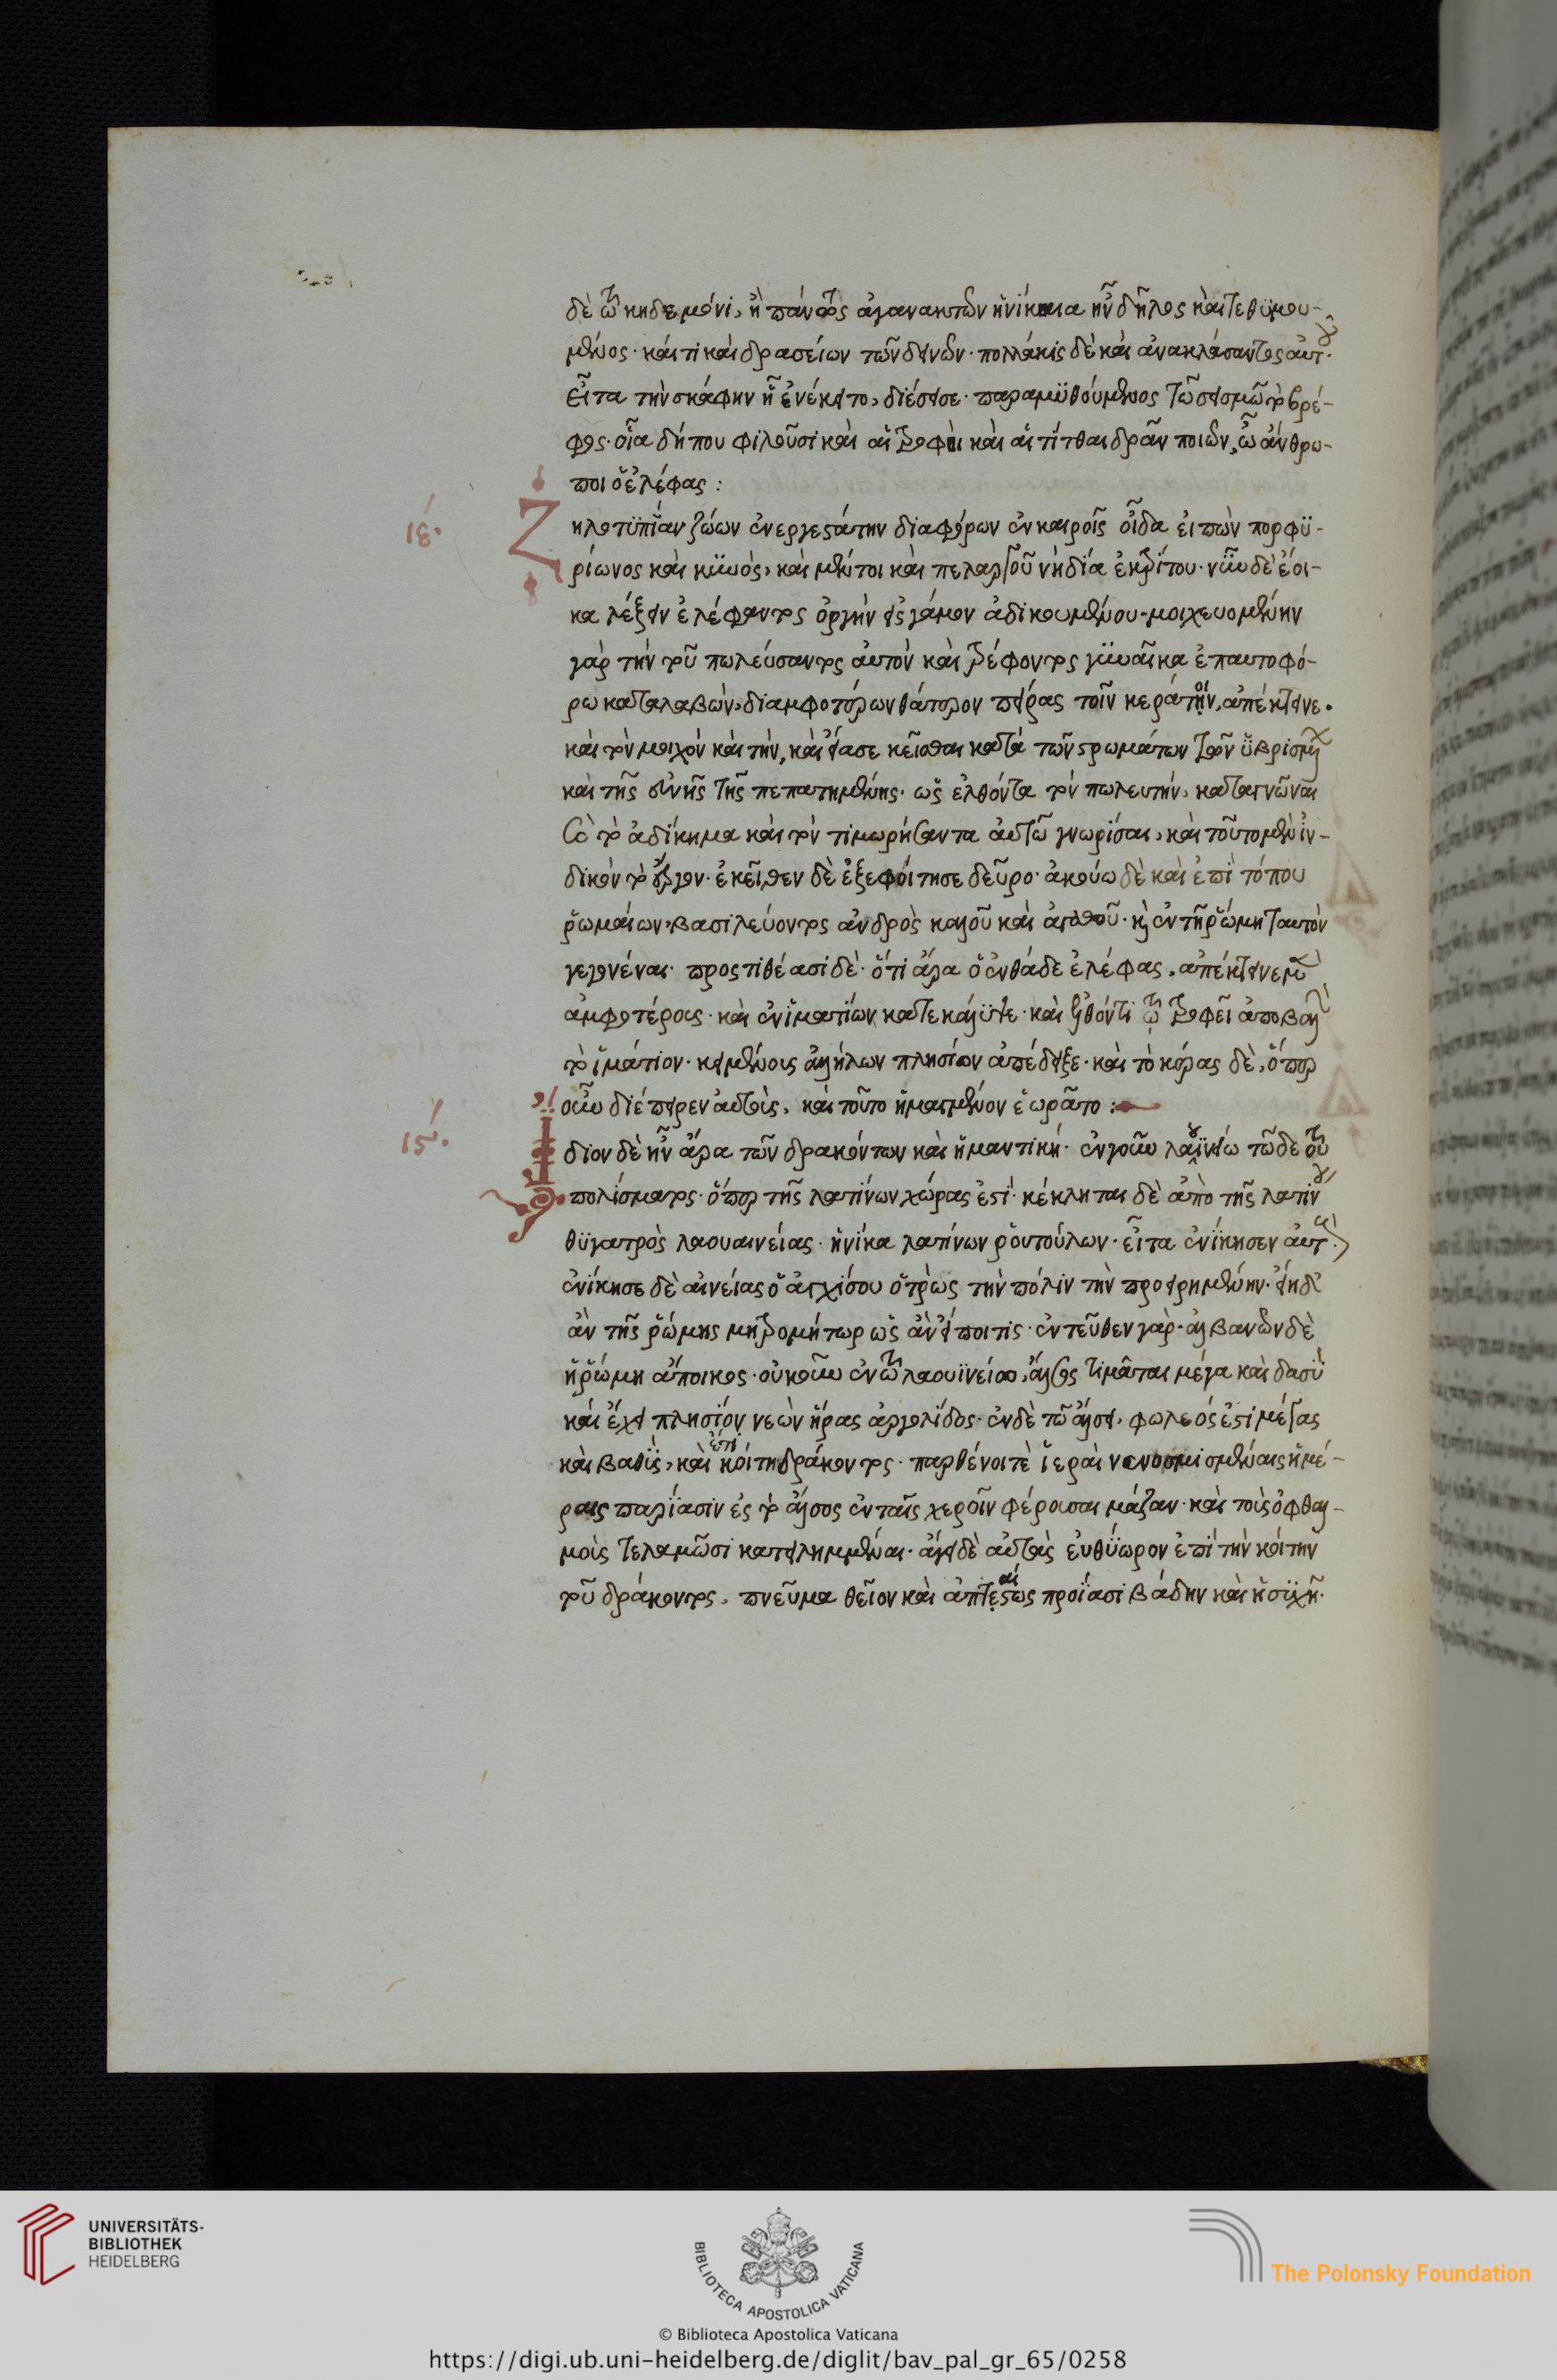 δὲ τῶ κηδεμόνι, ἢ πάντως ἀγανακτῶν ἡνίκα ἦν δῆλος καὶ τεθυμου-
μένος· καί τι καὶ δρασείων τῶν δεινῶν· πολλάκις δὲ καὶ ἀνακλάσαντος αὐτοῦ·
εἶτα τὴν σκάφην ᾗ ἐνέκειτο, διέσεισε· παραμυθούμενος τῶ σεισμῶ τὸ βρέ-
φος· οἷα δήπου φιλοῦσι καὶ αἱ τροφοὶ καὶ αἱ τίτθαι δρᾶν ποιῶν, ὦ ἄνθρω-
ποι ὁ ἐλέφας:
ιε΄.
Ζηλοτυπίαν ζώων ἐνεργεστάτην διαφόρων ἐν καιροῖς οἶδα εἰπὼν πορφυ-
ρίωνος καὶ κυνὸς, καὶ μέντοι καὶ πελαργοῦ νὴ δία ἐκρίτου· νῦν δὲ ἔοι-
κα λέξειν ἐλέφαντος ὀργὴν εἰς γάμον ἀδικουμένου· μοιχευομένην
γὰρ τὴν τοῦ πωλεύσαντος αὐτὸν καὶ τρέφοντος γυναῖκα ἐπαυτοφό-
ρω καταλαβών, διαμφοτέρων θάτερον πείρας τοῖν κεράτοιν, ἀπέκτεινε.
καὶ τὸν μοιχὸν καὶ τὴν, καὶ εἴασε κεῖσθαι κατὰ τῶν στρωμάτων τῶν ὑβρισμένων
καὶ τῆς εὐνῆς τῆς πεπατημένης· ὡς ἐλθόντα τὸν πωλευτὴν, καταγνῶναι
καὶ τὸ ἀδίκημα καὶ τὸν τιμωρήσαντα αὐτῶ γνωρίσαι, καὶ τοῦτο μὲν ἰν-
δικὸν τὸ ἔργον· ἐκεῖθεν δὲ ἐξεφοίτησε δεῦρο· ἀκούω δὲ καὶ ἐπὶ τόπου
ῥωμαίων βασιλεύοντος ἀνδρὸς καλοῦ καὶ ἀγαθοῦ· καὶ ἐν τῇ ῥώμη ταυτὸν
γεγονέναι· προστιθέασι δὲ· ὅτι ἄρα ὁ ἐνθάδε ἐλέφας, ἀπέκτεινε μὲν
ἀμφοτέρους· καὶ ἐν ἱματίων κατεκάλυψε· καὶ ἐλθόντι τῶ τροφεῖ ἀποβαλὼν
τὸ ἱμάτιον· κειμένους ἀλλήλων πλησίον ἀπέδειξε· καὶ τὸ κέρας δὲ, ὅπερ
οὖν διέπειρεν αὐτοὺς, καὶ τοῦτο ἡμαγμένον ἑωρᾶτο:
ις΄.
Ἴδιον δὲ ἦν ἄρα τῶν δρακόντων καὶ ἡ μαντική· ἐν γοῦν λαουϊνίω τῶδε τοῦ
πολίσματος· ὅπερ τῆς λατίνων χώρας ἐστί· κέκληται δὲ ἀπὸ τῆς λατίνου
θυγατρὸς λαουαινείας· ἡνίκα λατίνων ῥουτούλων· εἶτα ἐνίκησεν αὐτοὺς·
ἐνίκησε δὲ αἰνείας ὁ ἀγχίσου ὁ τρὼς τὴν πόλιν τὴν προειρημένην· εἴη δὲ
ἂν τῆς ῥώμης μητρομήτωρ ὡς ἂν εἴποι τις· ἐντεῦθεν γὰρ· ἀλβανῶν δὲ
ἡ ῥώμη ἄποικος· οὐκοῦν ἐν τῶ λαουϊνείω, ἄλσος τιμᾶται μέγα καὶ δασὺ
καὶ ἔχει πλησίον νεὼν ἥρας ἀργολίδος· ἐν δὲ τῶ ἄλσει, φωλεός ἐστι μέγας
καὶ βαθὺς, καὶ ἐπὶ κοίτη δράκοντος· παρθένοι τὲ ἱεραὶ νενομισμέναις ἡμέ-
ραις παρίασιν ἐς τὸ ἄλσος ἐν ταῖς χεροῖν φέρουσαι μάζαν· καὶ τοὺς ὀφθαλ-
μοὺς τελαμῶσι κατειλημμέναι· ἄγει δὲ αὐτὰς εὐθύωρον ἐπὶ τὴν κοίτην
τοῦ δράκοντος, πνεῦμα θεῖον καὶ ἀπταίστως προΐασι βάδην καὶ ἡσυχῆ·
UNIVERSITÄTS-
BIBLIOTHEK
HEIDELBERG
BIBLIOTECA APOSTOLICA VATICANA
The Polonsky Foundation
© Biblioteca Apostolica Vaticana
https://digi.ub.uni-heidelberg.de/diglit/bav_pal_gr_65/0258